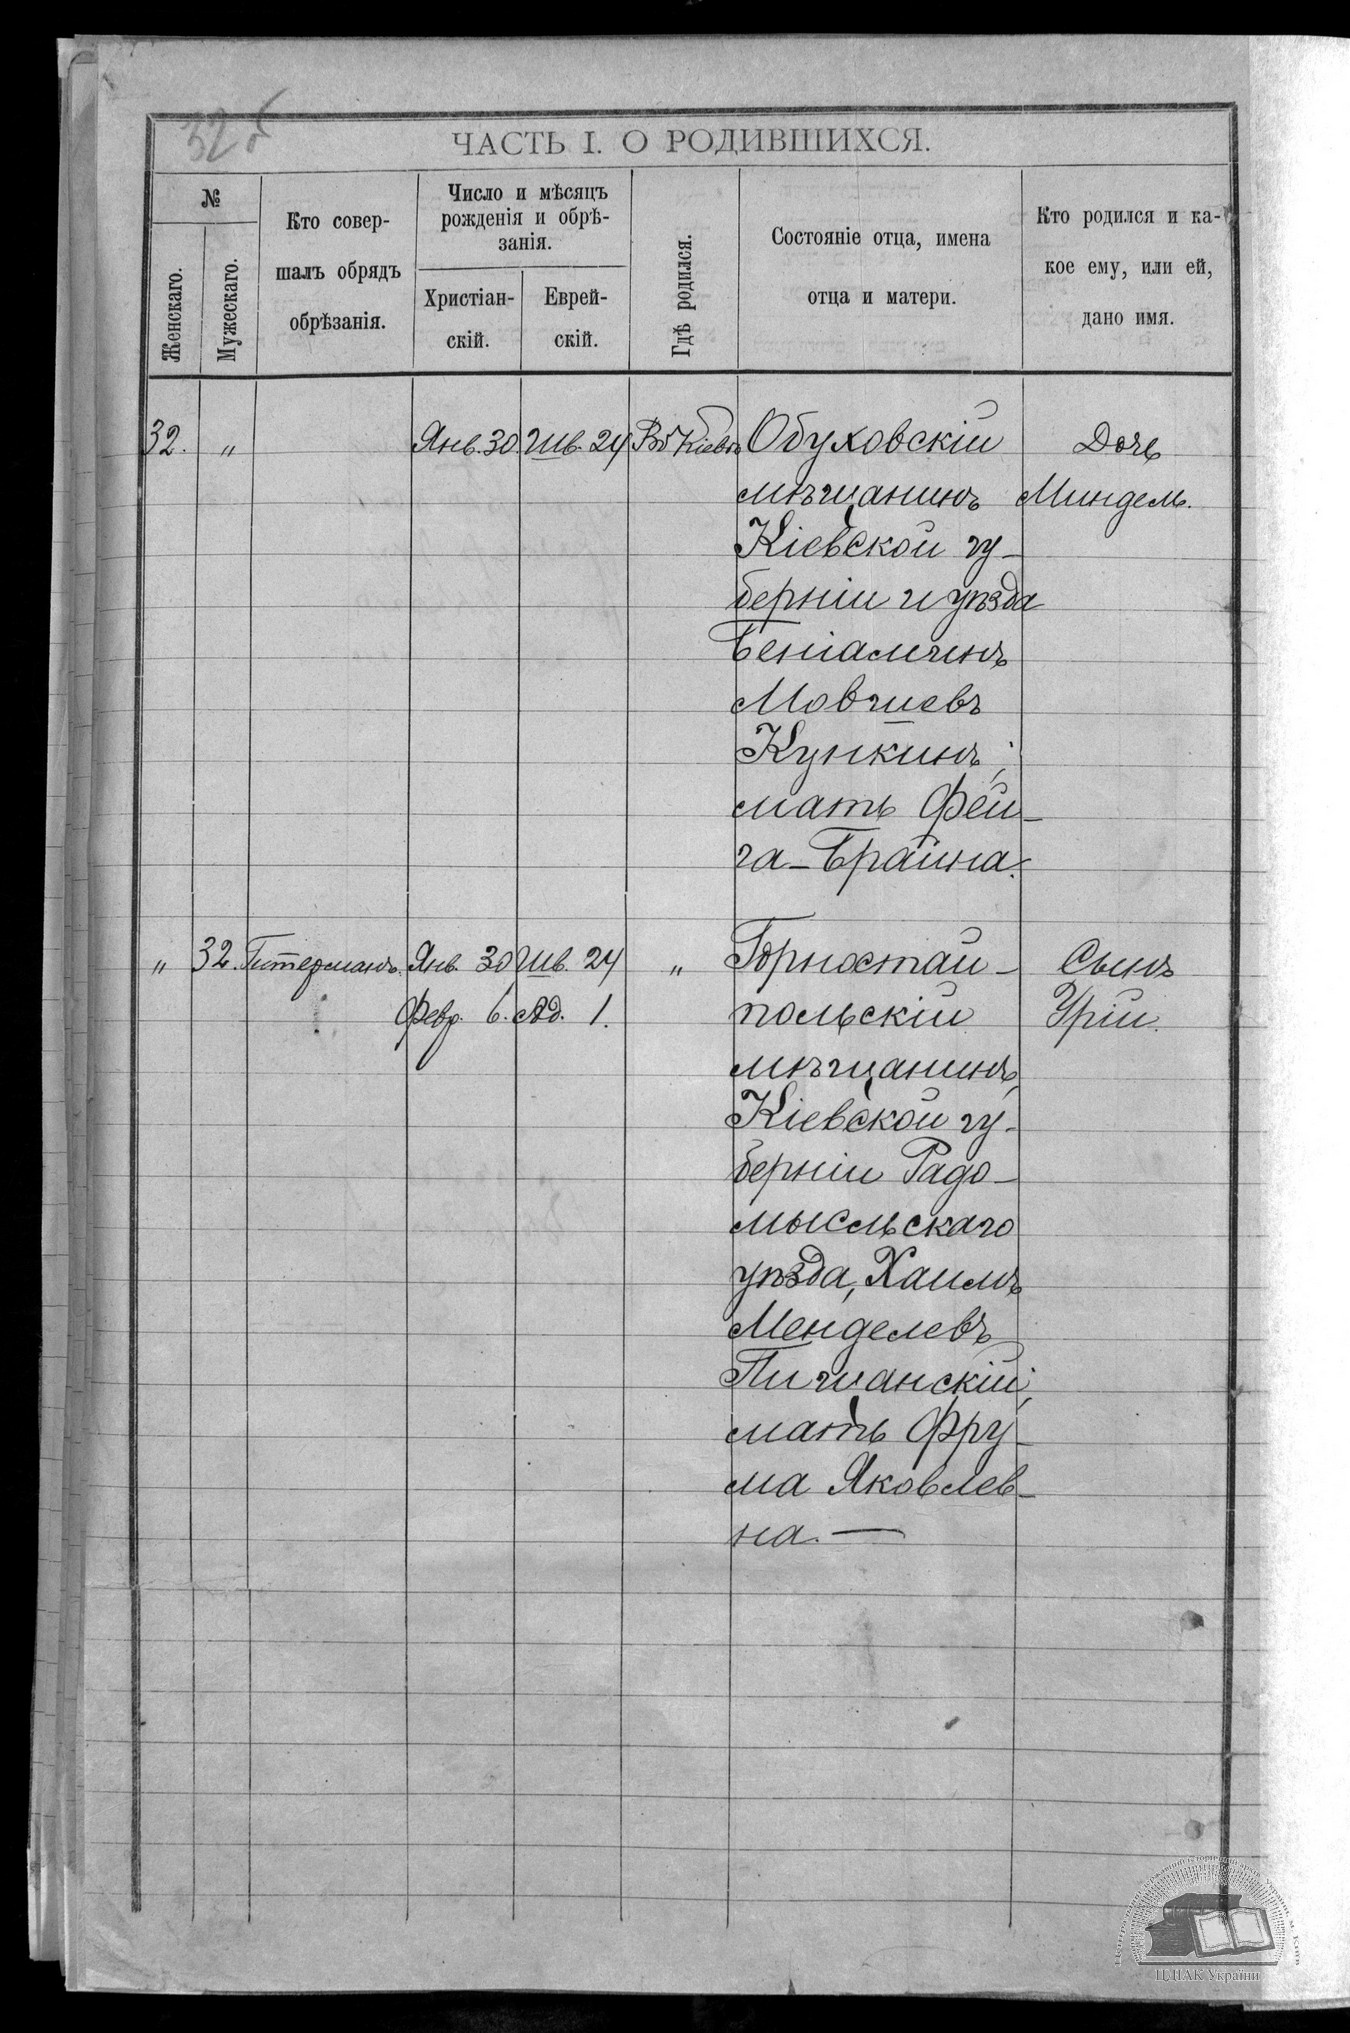 32
ЧАСТЬ I. О РОДИВШИХСЯ.
№
Женскаго.
Мужескаго.
Кто совер-
шалъ обрядъ
обрѣзанія.
Число и мѣсяцъ
рожденія и обрѣ-
занія.
Христіан-
скій.
Еврей-
скій.
Гдѣ родился.
Состояніе отца, имена
отца и матери.
Кто родился и ка-
кое ему, или ей,
дано имя.
32. " Янв. 30. Шв. 24 Въ Кіевѣ Обуховскій Дочь
мѣщанинъ Миндель.
Кіевской гу-
берніи и уѣзда
Беніаминъ
Мовшевъ
Кункинъ;
мать Фей-
га-Брайна.
" 32. Гитерманъ. Янв. 30 Шв. 24 " Горностай- Сынъ
Февр. 6. Ад. 1. польскій Урій.
мѣщанинъ,
Кіевской гу-
берніи Радо-
мысльскаго
уѣзда, Хаимъ
Менделевъ
Пищанскій;
мать Фру-
ма Яковлев-
на. —
ЦДІАК України